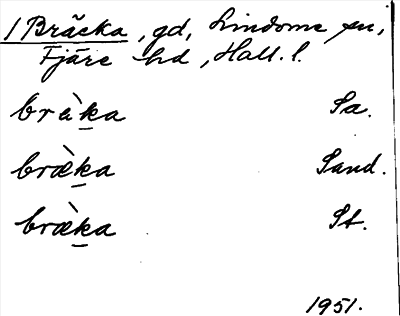 /Bräcka, gd, Lindome sn,
Fjäre hd, Hall. l.
bràka Sa.
bræ̀ka Sand.
bræ̀ka St.
1951.